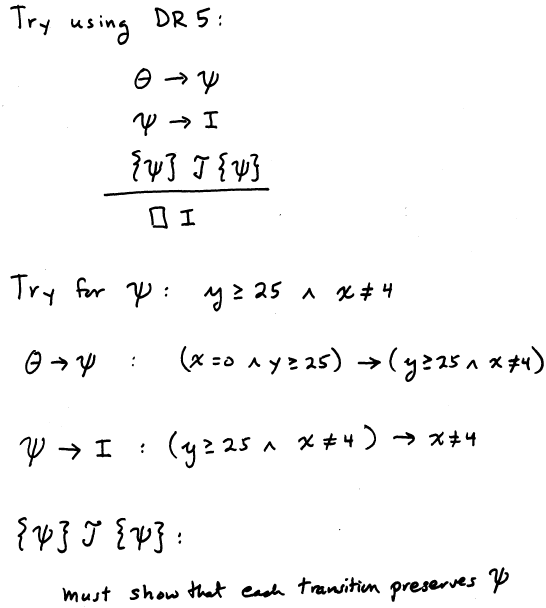 Try using DR 5:
Θ → ψ
ψ → I
{ψ} 𝒯 {ψ}
□ I
Try for ψ: y ≥ 25 ∧ x ≠ 4
Θ → ψ : (x = 0 ∧ y ≥ 25) → (y ≥ 25 ∧ x ≠ 4)
ψ → I : (y ≥ 25 ∧ x ≠ 4) → x ≠ 4
{ψ} 𝒯 {ψ}:
must show that each transition preserves ψ